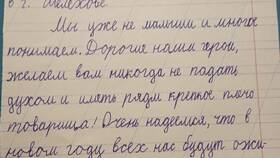 в г. Шелехове.
Мы уже не малыши и многое
понимаем. Дорогие наши герои,
желаем вам никогда не падать
духом и иметь рядом крепкое плечо
товарища! Очень надеемся, что в
новом году всех нас будут ожи-